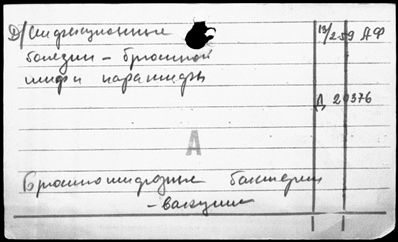 Д/Инфекционные
болезни – брюшной
тиф и паратифы
13/259 АФ
Д 20376
А
Брюшнотифозные бактерии
– вакцины